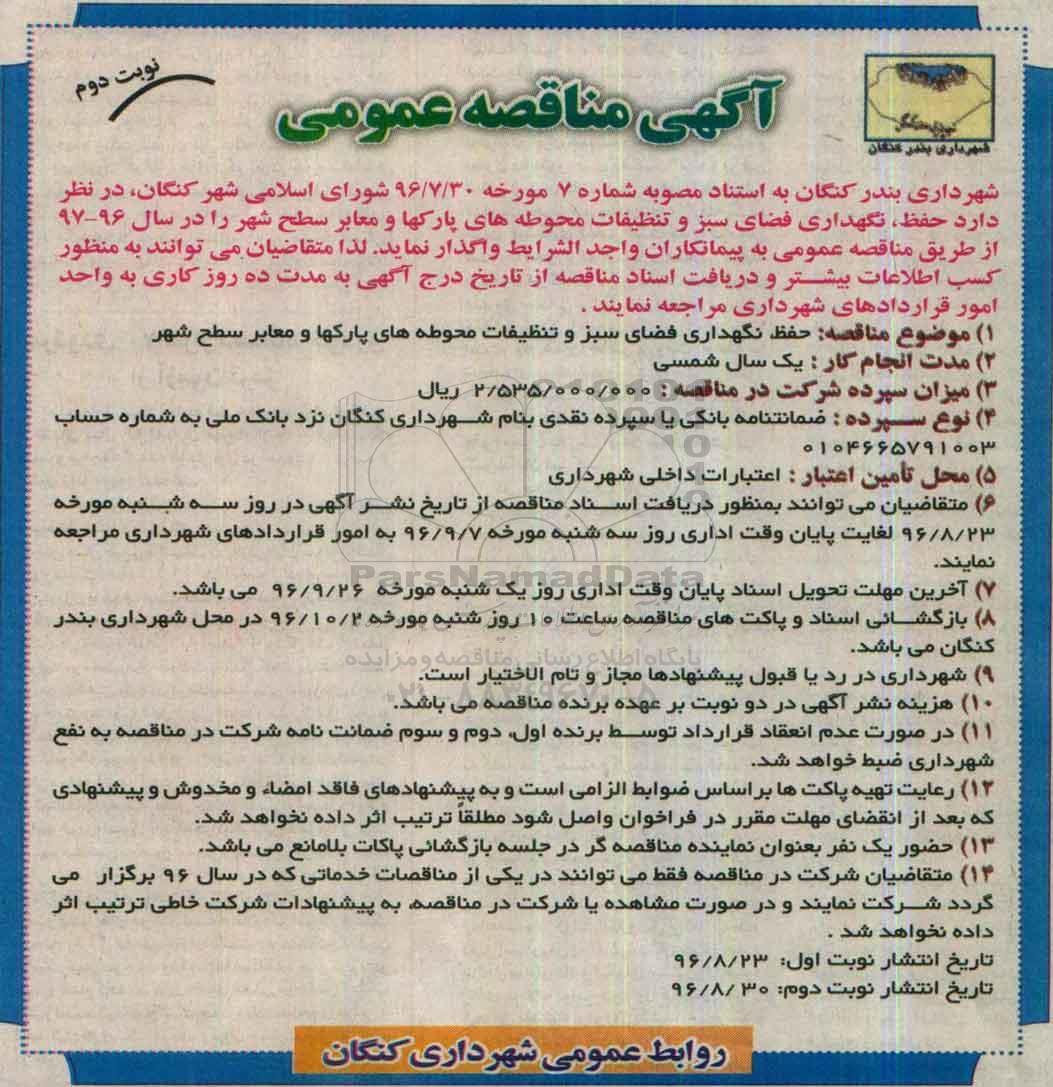 نوبت دوم
آگهی مناقصه عمومی
شهرداری بندر کنگان
شهرداری بندر کنگان به استناد مصوبه شماره ۷ مورخه ۹۶/۷/۳۰ شورای اسلامی شهر کنگان، در نظر
دارد حفظ، نگهداری فضای سبز و تنظیفات محوطه های پارکها و معابر سطح شهر را در سال ۹۶-۹۷
از طریق مناقصه عمومی به پیمانکاران واجد الشرایط واگذار نماید. لذا متقاضیان می توانند به منظور
کسب اطلاعات بیشتر و دریافت اسناد مناقصه از تاریخ درج آگهی به مدت ده روز کاری به واحد
امور قراردادهای شهرداری مراجعه نمایند .
۱) موضوع مناقصه: حفظ، نگهداری فضای سبز و تنظیفات محوطه های پارکها و معابر سطح شهر
۲) مدت انجام کار : یک سال شمسی
۳) میزان سپرده شرکت در مناقصه : ۲/۵۳۵/۰۰۰/۰۰۰ ریال
۴) نوع سپرده : ضمانتنامه بانکی یا سپرده نقدی بنام شهرداری کنگان نزد بانک ملی به شماره حساب
۰۱۰۴۶۶۵۷۹۱۰۰۳
۵) محل تأمین اعتبار : اعتبارات داخلی شهرداری
۶) متقاضیان می توانند بمنظور دریافت اسناد مناقصه از تاریخ نشر آگهی در روز سه شنبه مورخه
۹۶/۸/۲۳ لغایت پایان وقت اداری روز سه شنبه مورخه ۹۶/۹/۷ به امور قراردادهای شهرداری مراجعه
نمایند.
۷) آخرین مهلت تحویل اسناد پایان وقت اداری روز یک شنبه مورخه ۹۶/۹/۲۶ می باشد.
۸) بازگشائی اسناد و پاکت های مناقصه ساعت ۱۰ روز شنبه مورخه ۹۶/۱۰/۲ در محل شهرداری بندر
کنگان می باشد.
۹) شهرداری در رد یا قبول پیشنهادها مجاز و تام الاختیار است.
۱۰) هزینه نشر آگهی در دو نوبت بر عهده برنده مناقصه می باشد.
۱۱) در صورت عدم انعقاد قرارداد توسط برنده اول، دوم و سوم ضمانت نامه شرکت در مناقصه به نفع
شهرداری ضبط خواهد شد.
۱۲) رعایت تهیه پاکت ها براساس ضوابط الزامی است و به پیشنهادهای فاقد امضاء و مخدوش و پیشنهادی
که بعد از انقضای مهلت مقرر در فراخوان واصل شود مطلقاً ترتیب اثر داده نخواهد شد.
۱۳) حضور یک نفر بعنوان نماینده مناقصه گر در جلسه بازگشائی پاکات بلامانع می باشد.
۱۴) متقاضیان شرکت در مناقصه فقط می توانند در یکی از مناقصات خدماتی که در سال ۹۶ برگزار می
گردد شرکت نمایند و در صورت مشاهده یا شرکت در مناقصه، به پیشنهادات شرکت خاطی ترتیب اثر
داده نخواهد شد .
تاریخ انتشار نوبت اول: ۹۶/۸/۲۳
تاریخ انتشار نوبت دوم: ۹۶/۸/۳۰
روابط عمومی شهرداری کنگان
ParsNamadData
پایگاه اطلاع رسانی مناقصه و مزایده